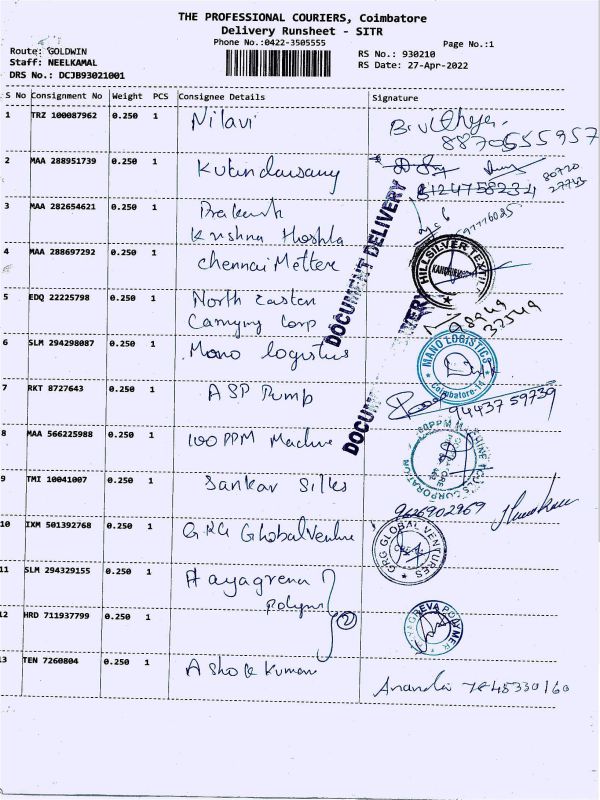 THE PROFESSIONAL COURIERS, Coimbatore
Delivery Runsheet - SITR
Phone No.:0422-3505555
Page No.:1
Route: GOLDWIN
Staff: NEELKAMAL
DRS No.: DCJB93021001
RS No.: 930210
RS Date: 27-Apr-2022
S No Consignment No Weight PCS Consignee Details Signature
1 TRZ 100087962 0.250 1 Nilavi
8870555957
2 MAA 288951739 0.250 1
3 MAA 282654621 0.250 1 Prakash
Krishna
4 MAA 288697292 0.250 1 Chennai Mettere
HILLSILVER TEXTILE
5 EDQ 22225798 0.250 1 North Eastern
Carrying Corp
98949
37549
6 SLM 294298087 0.250 1 Mano logistics
MANO LOGISTICS
Coimbatore-14
7 RKT 8727643 0.250 1 ASP Pump
9443759739
8 MAA 566225988 0.250 1 100 PPM Machine
9 TMI 10041007 0.250 1 Sankar Silks
9626902969
10 IXM 501392768 0.250 1 GRG Global Venture
GRG GLOBAL VENTURES
11 SLM 294329155 0.250 1 Hayagreva
Polymer
2
12 HRD 711937799 0.250 1
HAYAGREVA POLYMER
13 TEN 7260804 0.250 1 Ashok Kumar
7845330160
DOCUMENT DELIVERY